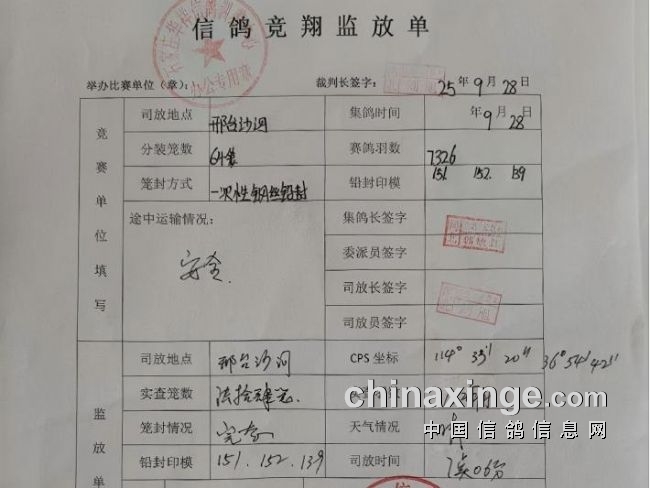 信鸽竞翔监放单
举办比赛单位（章）： 裁判长签字： 25年9月28日
办公专用章
竞赛单位填写
司放地点 邢台沙河 集鸽时间 年9月28
分装笼数 64笼 赛鸽羽数 7326
笼封方式 一次性钢丝铅封 铅封印模 151. 152. 139
途中运输情况： 安全 集鸽长签字
委派员签字
司放长签字
司放员签字
监放单
司放地点 邢台沙河 CPS 坐标 114° 35' 20" 36°54'42"
实查笼数
笼封情况 完好 天气情况 晴
铅封印模 151.152.139 司放时间 7点06分
chinaxinge.com
中国信鸽信息网